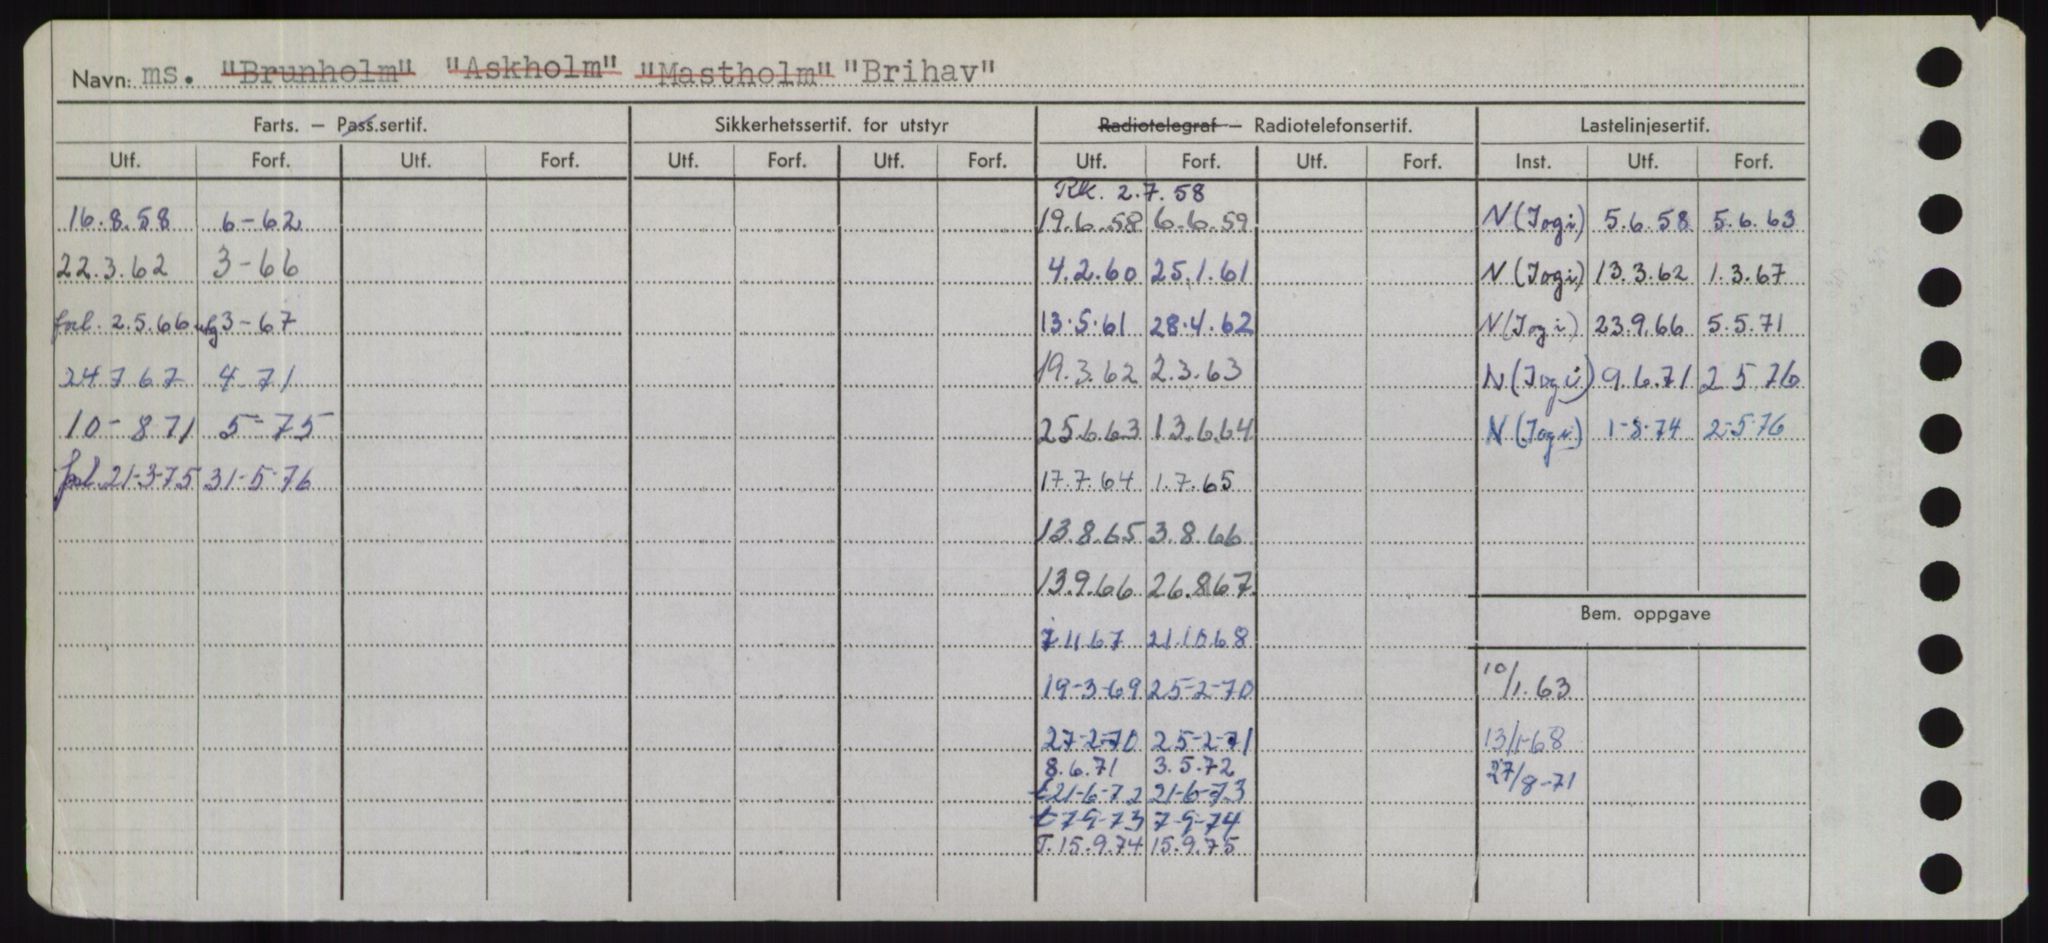 Navn: ms. "Brunholm" "Askholm" "Mastholm" "Brihav"
Farts. — Pass.sertif. Sikkerhetssertif. for utstyr Radiotelegraf — Radiotelefonsertif. Lastelinjesertif.
Utf. Forf. Utf. Forf. Utf. Forf. Utf. Forf. Utf. Forf. Utf. Forf. Inst. Utf. Forf.
RK. 2.7.58
16.8.58 6-62 19.6.58 6.6.59 N (Jogi) 5.6.58 5.6.63
22.3.62 3-66 4.2.60 25.1.61 N (Jogi) 13.3.62 1.3.67
forl. 2.5.66 3-67 13.5.61 28.4.62 N (Jogi) 23.9.66 5.5.71
24 7 67 4 71 19.3.62 2.3.63 N (Jogi) 9.6.71 2 5 76
10-8 71 5-75 25.6.63 13.6.64 N (Jogi) 1-8-74 2-5-76
forl. 21-3-75 31-5-76 17.7.64 1.7.65
13.8.65 3.8.66
13.9.66 26.8.67
Bem. oppgave
7 11 67 21.10.68
19-3-69 25-2-70 10/1.63
27-2-70 25-2-71 13/1-68
8.6.71 3.5.72 27/8-71
t 21-6-72 21-6-73
t 7-9-73 7-9-74
T. 15.9.74 15.9.75